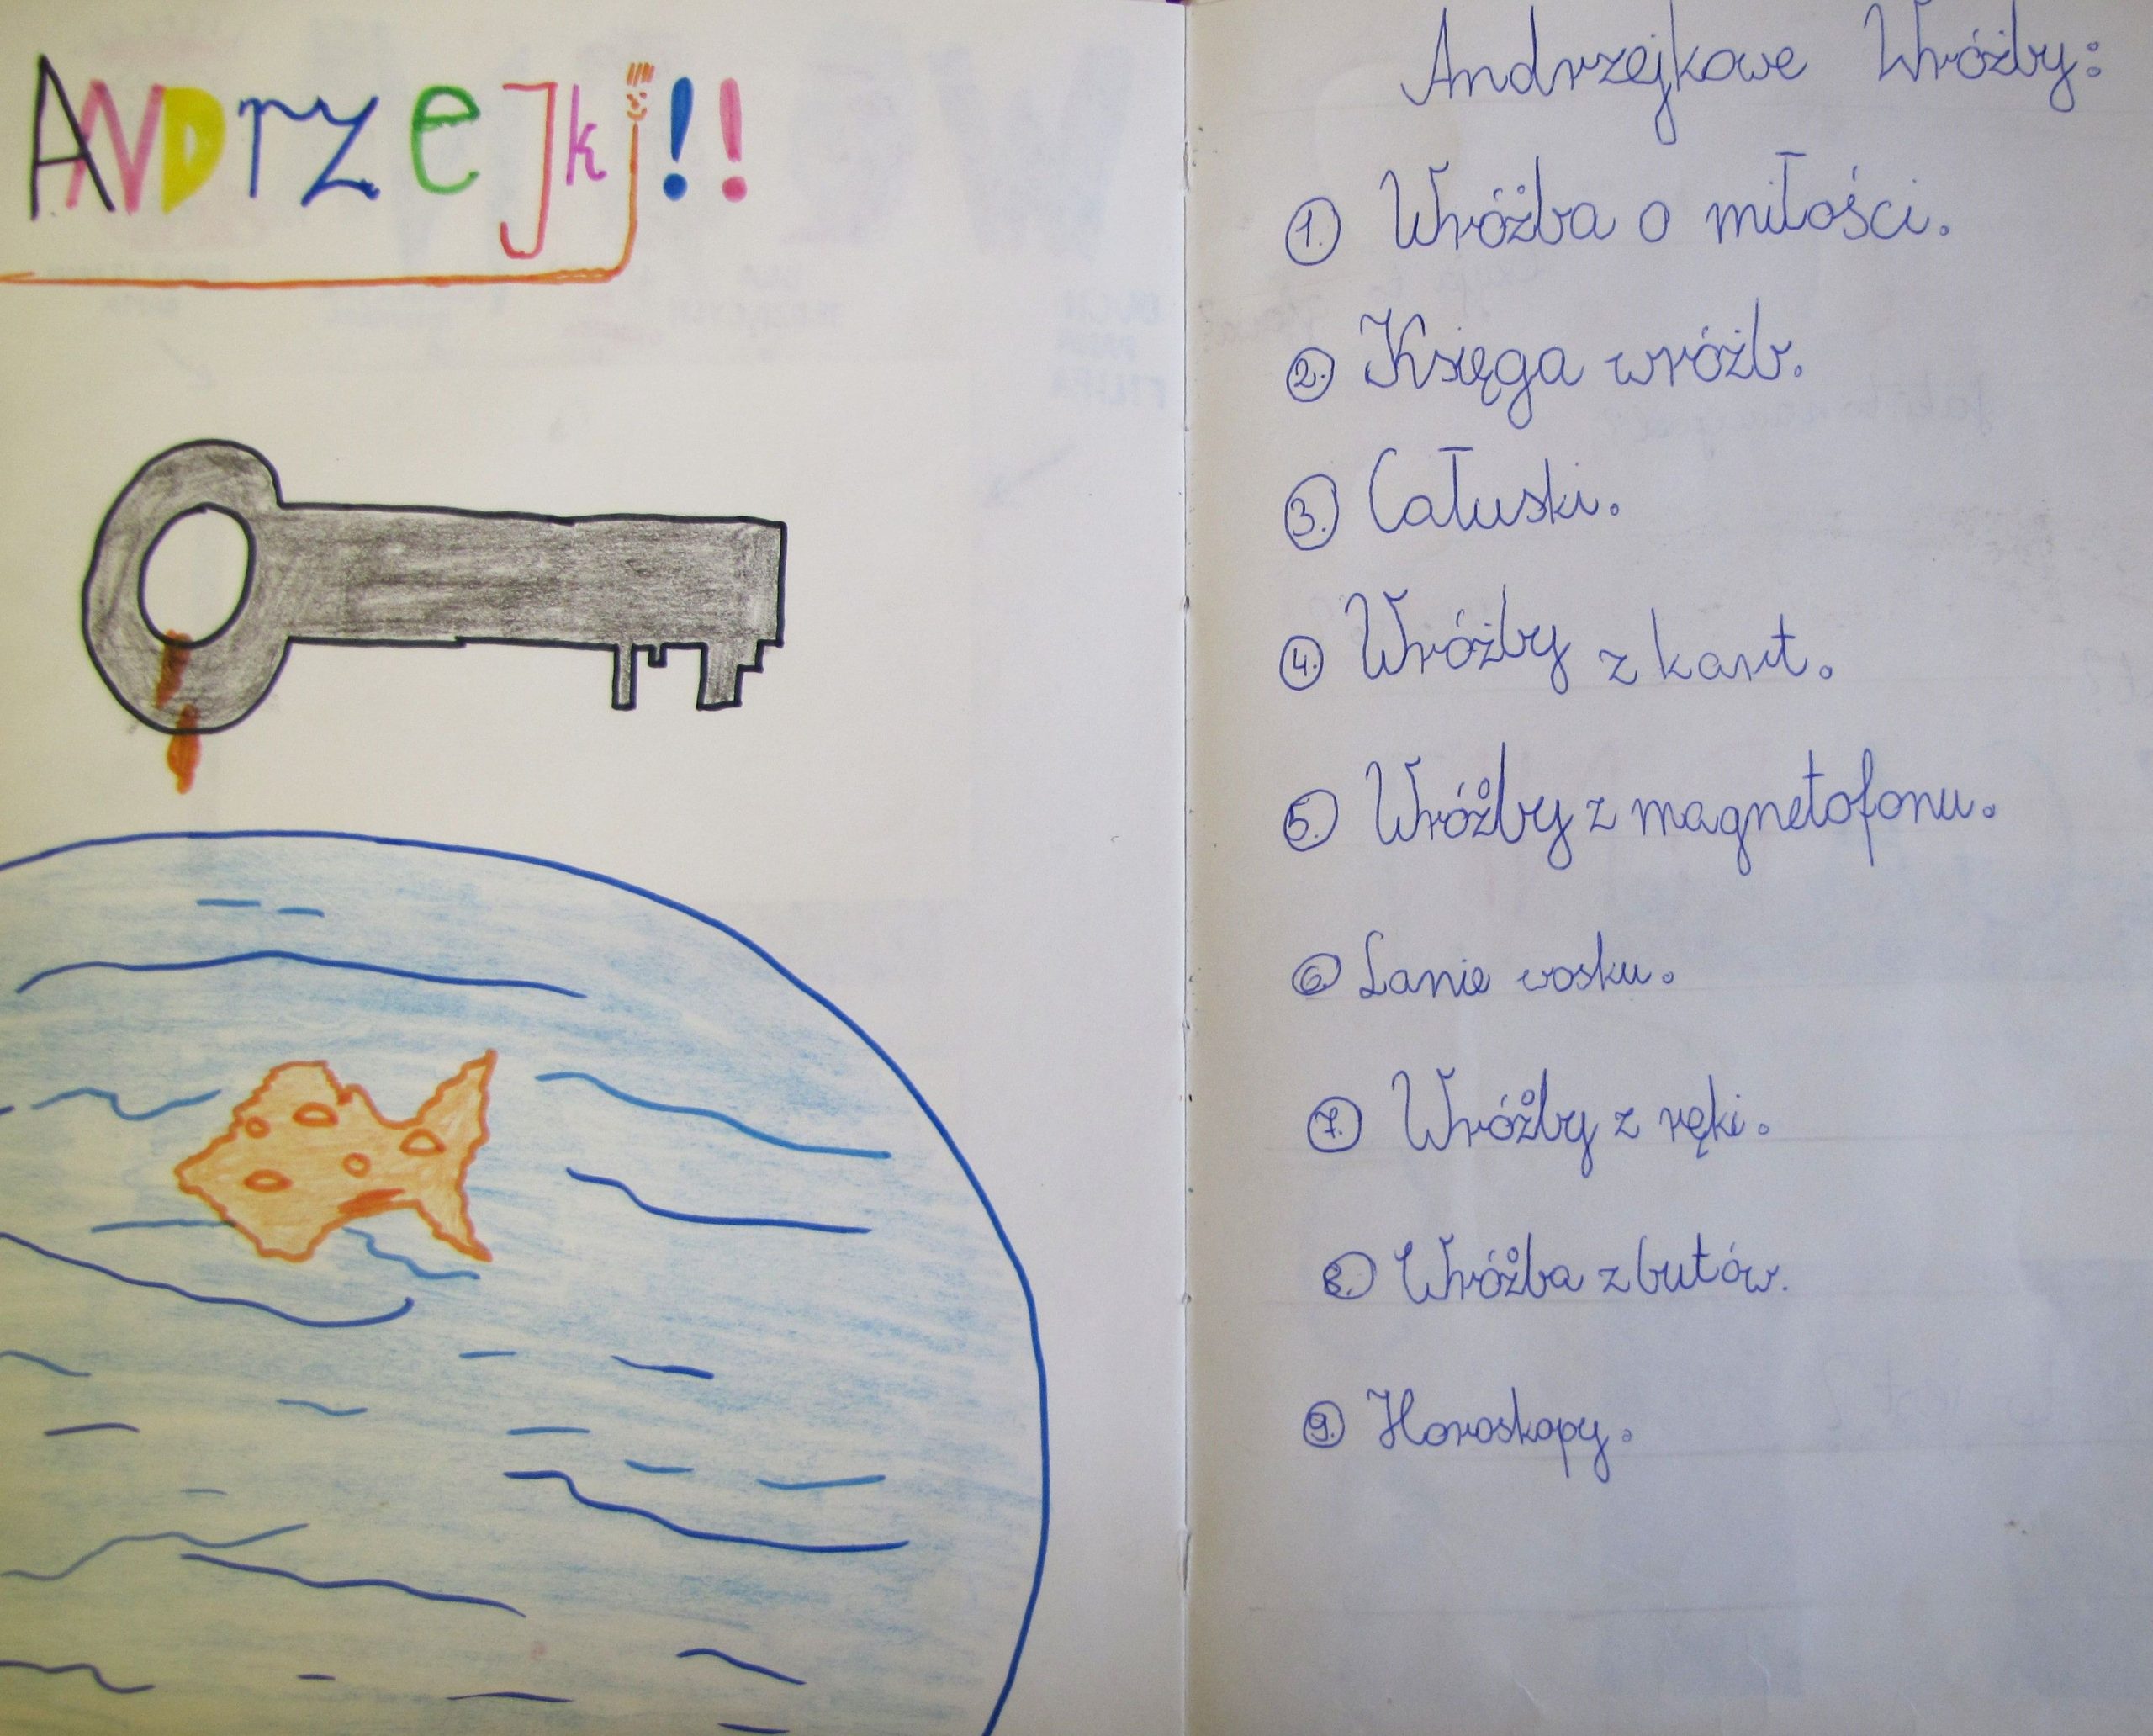 ANDrzeJki!!
Andrzejkowe Wróżby:
1. Wróżba o miłości.
2. Księga wróżb.
3. Całuski.
4. Wróżby z kart.
5. Wróżby z magnetofonu.
6. Lanie wosku.
7. Wróżby z ręki.
8. Wróżba z butów.
9. Horoskopy.